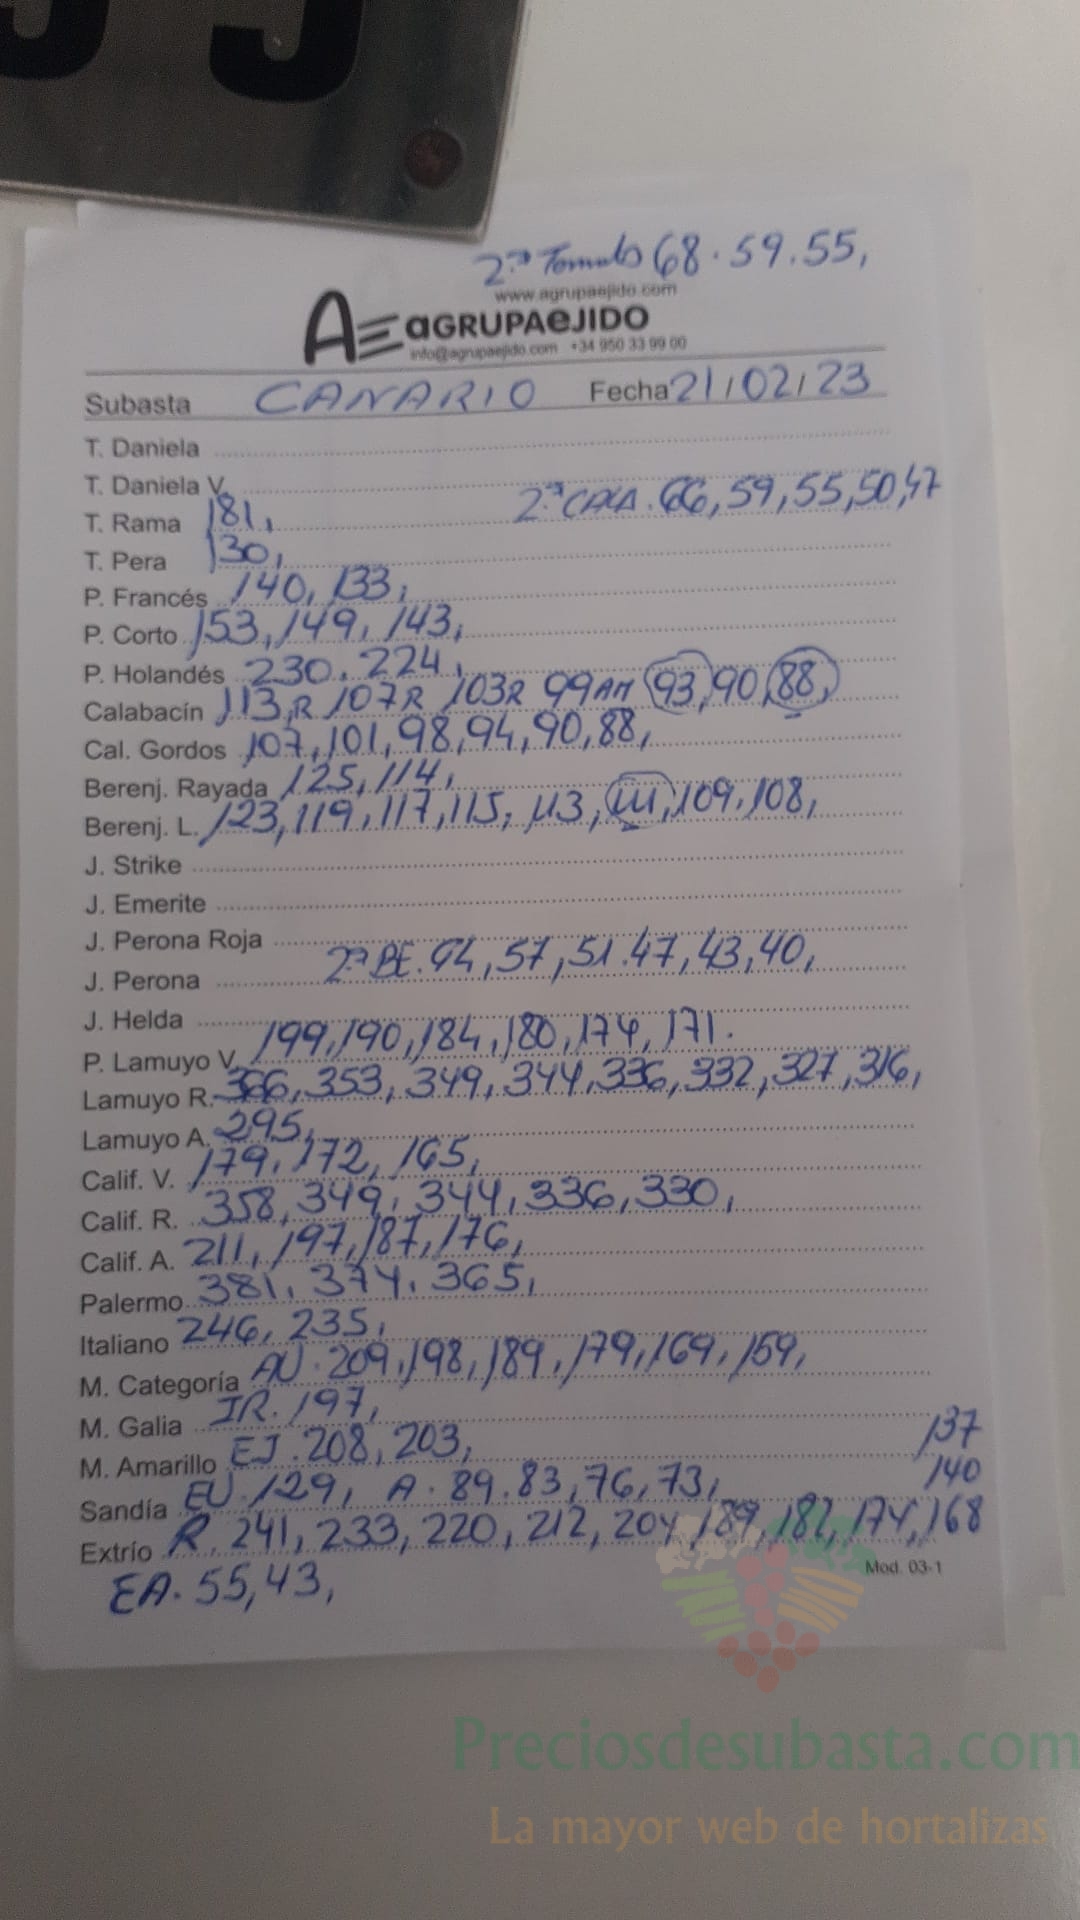 2ª Tomate 68.59.55,
www.agrupaejido.com
AE AGRUPAEJIDO
info@agrupaejido.com +34 950 33 99 00
Subasta CANARIO Fecha 21/02/23
T. Daniela
T. Daniela V.
2ª CALA. 66,59,55,50,47
T. Rama 181,
T. Pera 130,
P. Francés 140, 133,
P. Corto 153, 149, 143,
P. Holandés 230. 224,
Calabacín 113,R 107R 103R 99AM 93,90,88,
Cal. Gordos 107,101,98,94,90,88,
Berenj. Rayada 125,114,
Berenj. L. 123,119,117,115, 113,111,109,108,
J. Strike
J. Emerite
J. Perona Roja
2ª BE. 94,57,51.47,43,40,
J. Perona
J. Helda
P. Lamuyo V. 199,190,184,180,174,171.
Lamuyo R. 366,353,349,344,336,332,327,316,
Lamuyo A. 295,
Calif. V. 179,172,165,
Calif. R. 358,349,344,336,330,
Calif. A. 211,197,187,176,
Palermo 381, 374. 365,
Italiano 246, 235,
M. Categoría AU. 209,198,189,179,169,159,
M. Galia IR. 197,
137
M. Amarillo EJ. 208, 203,
140
Sandía EU. 129, A. 89.83,76,73,
Extrío R. 241, 233, 220, 212, 204,189,182,174,168
Mod. 03-1
EA. 55,43,
Preciosdesubasta.com
La mayor web de hortalizas